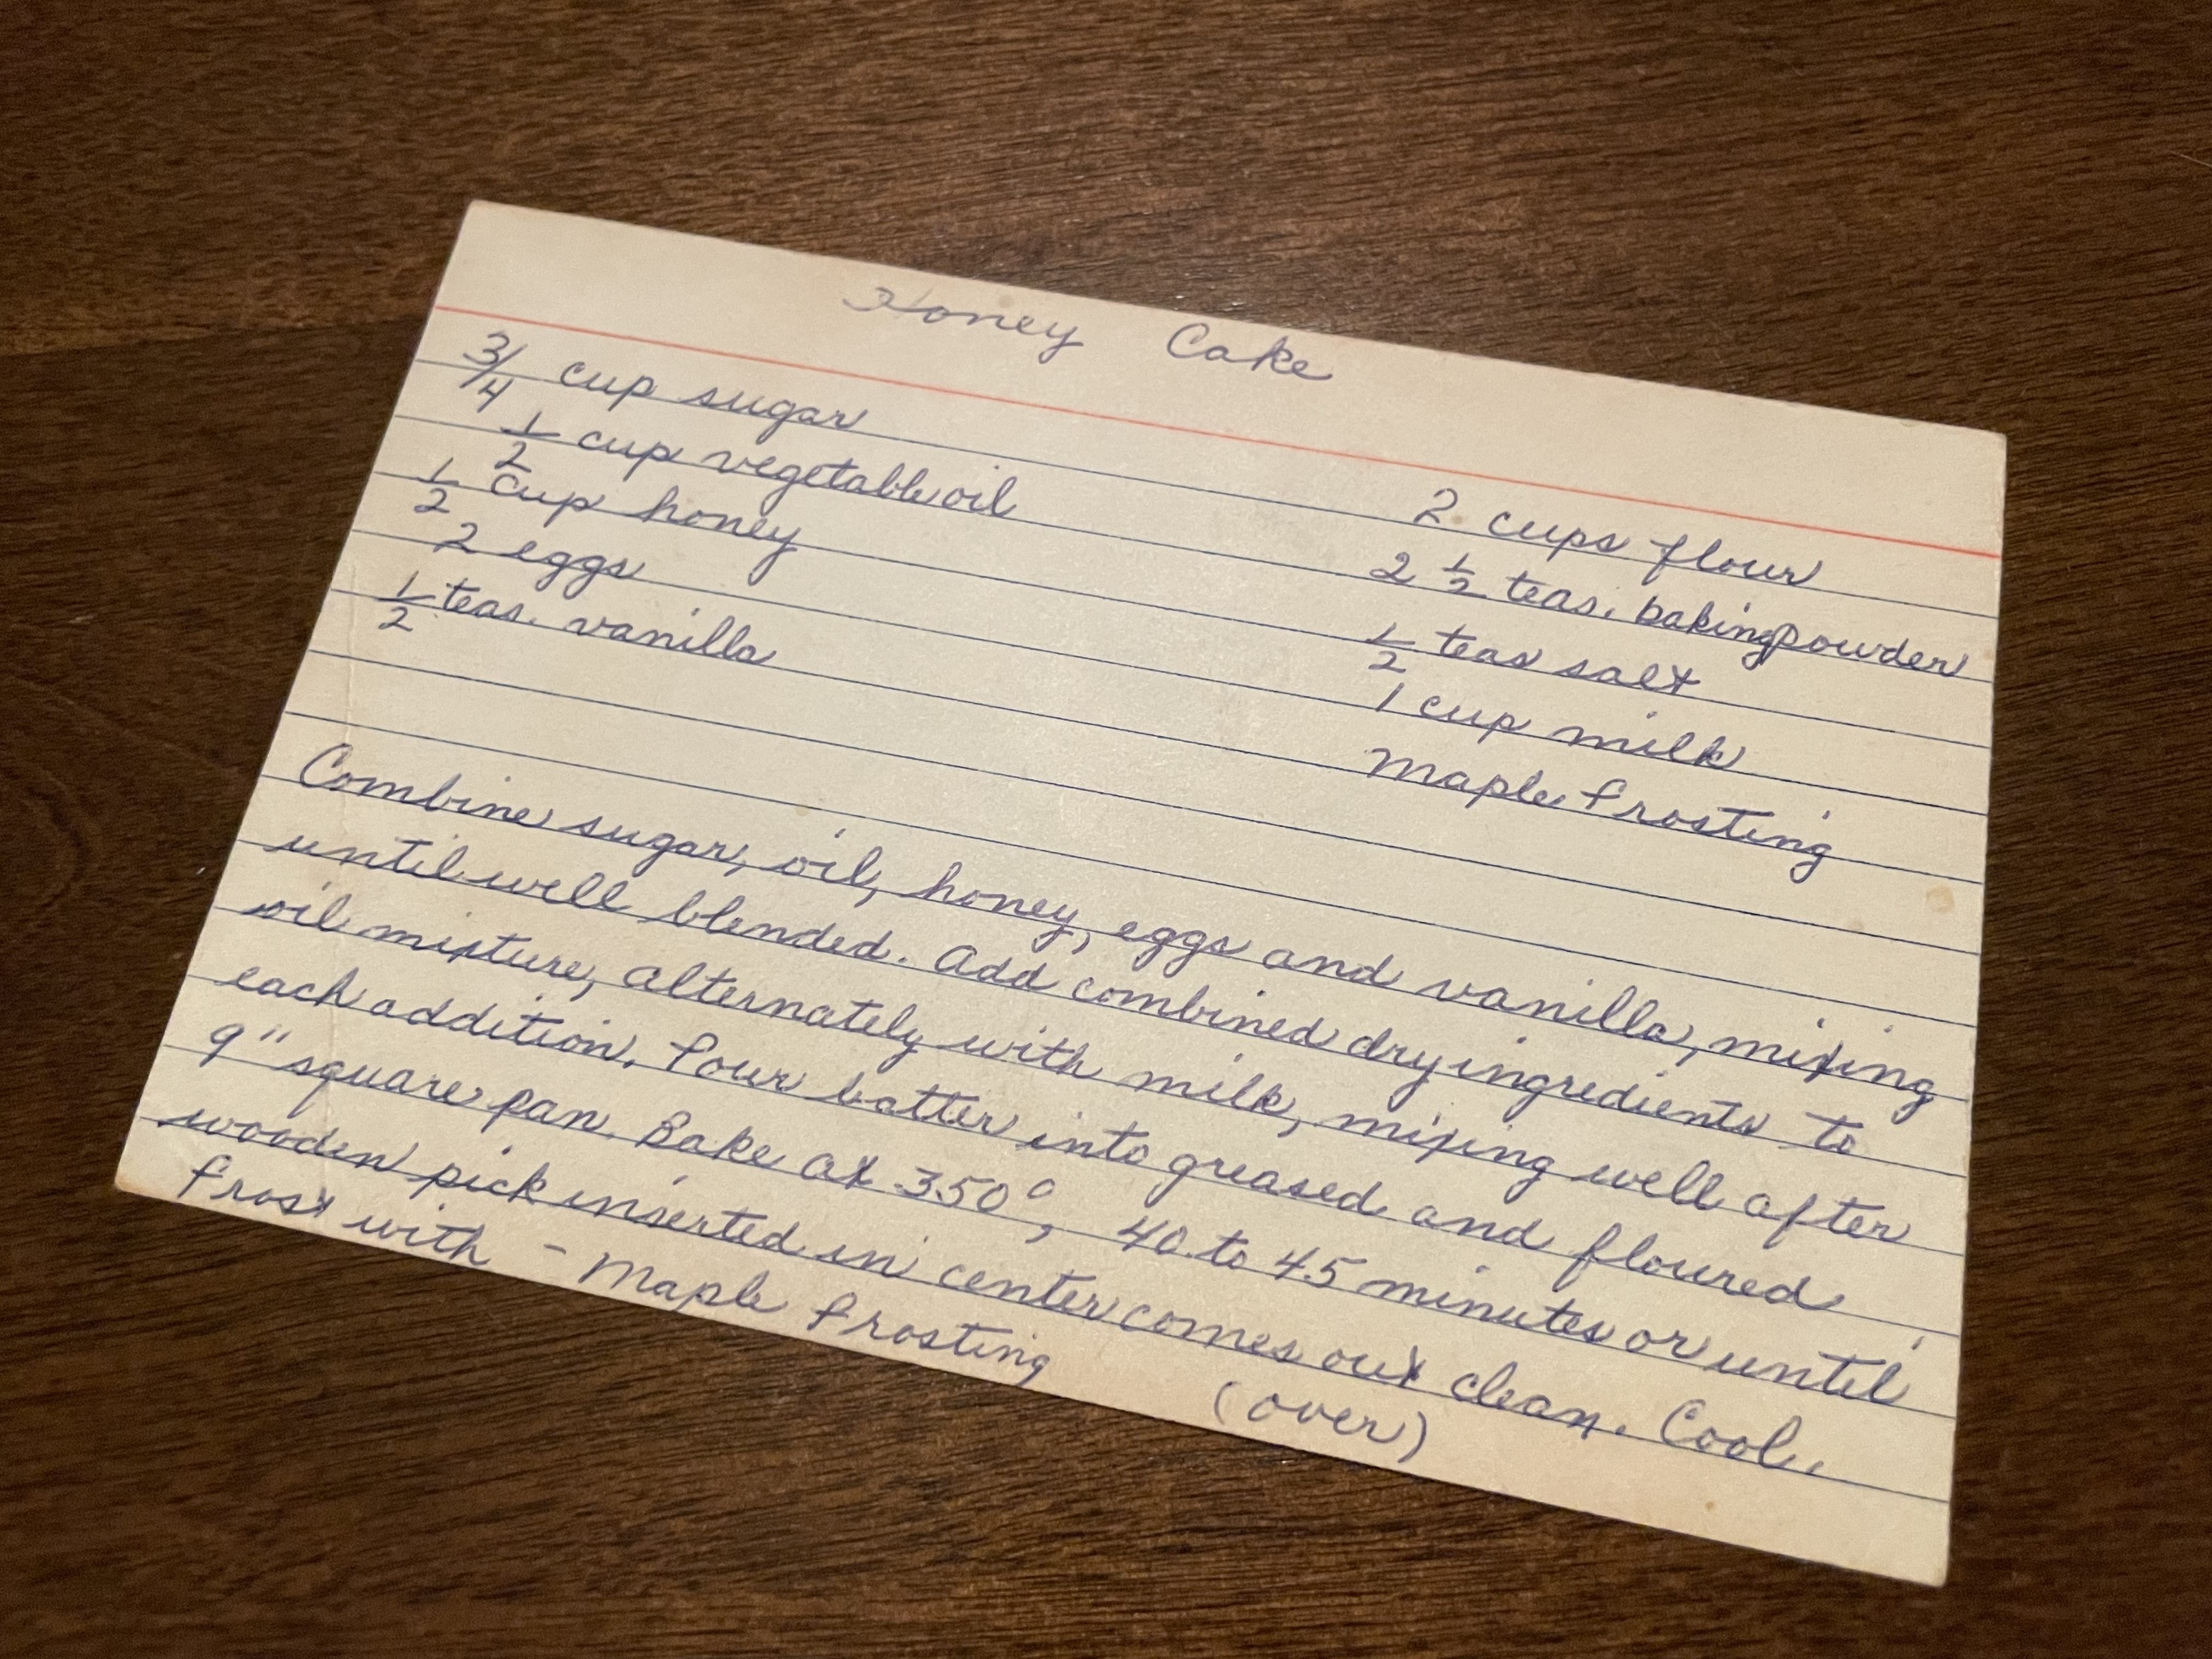 Honey Cake
3/4 cup sugar
1/2 cup vegetable oil
1/2 cup honey
2 eggs
1/2 teas. vanilla
2 cups flour
2 1/2 teas. baking powder
1/2 teas salt
1 cup milk
Maple Frosting
Combine sugar, oil, honey, eggs and vanilla, mixing
until well blended. Add combined dry ingredients to
oil mixture, alternately with milk, mixing well after
each addition. Pour batter into greased and floured
9" square pan. Bake at 350°, 40 to 45 minutes or until
wooden pick inserted in center comes out clean. Cool.
Frost with - Maple Frosting
(over)